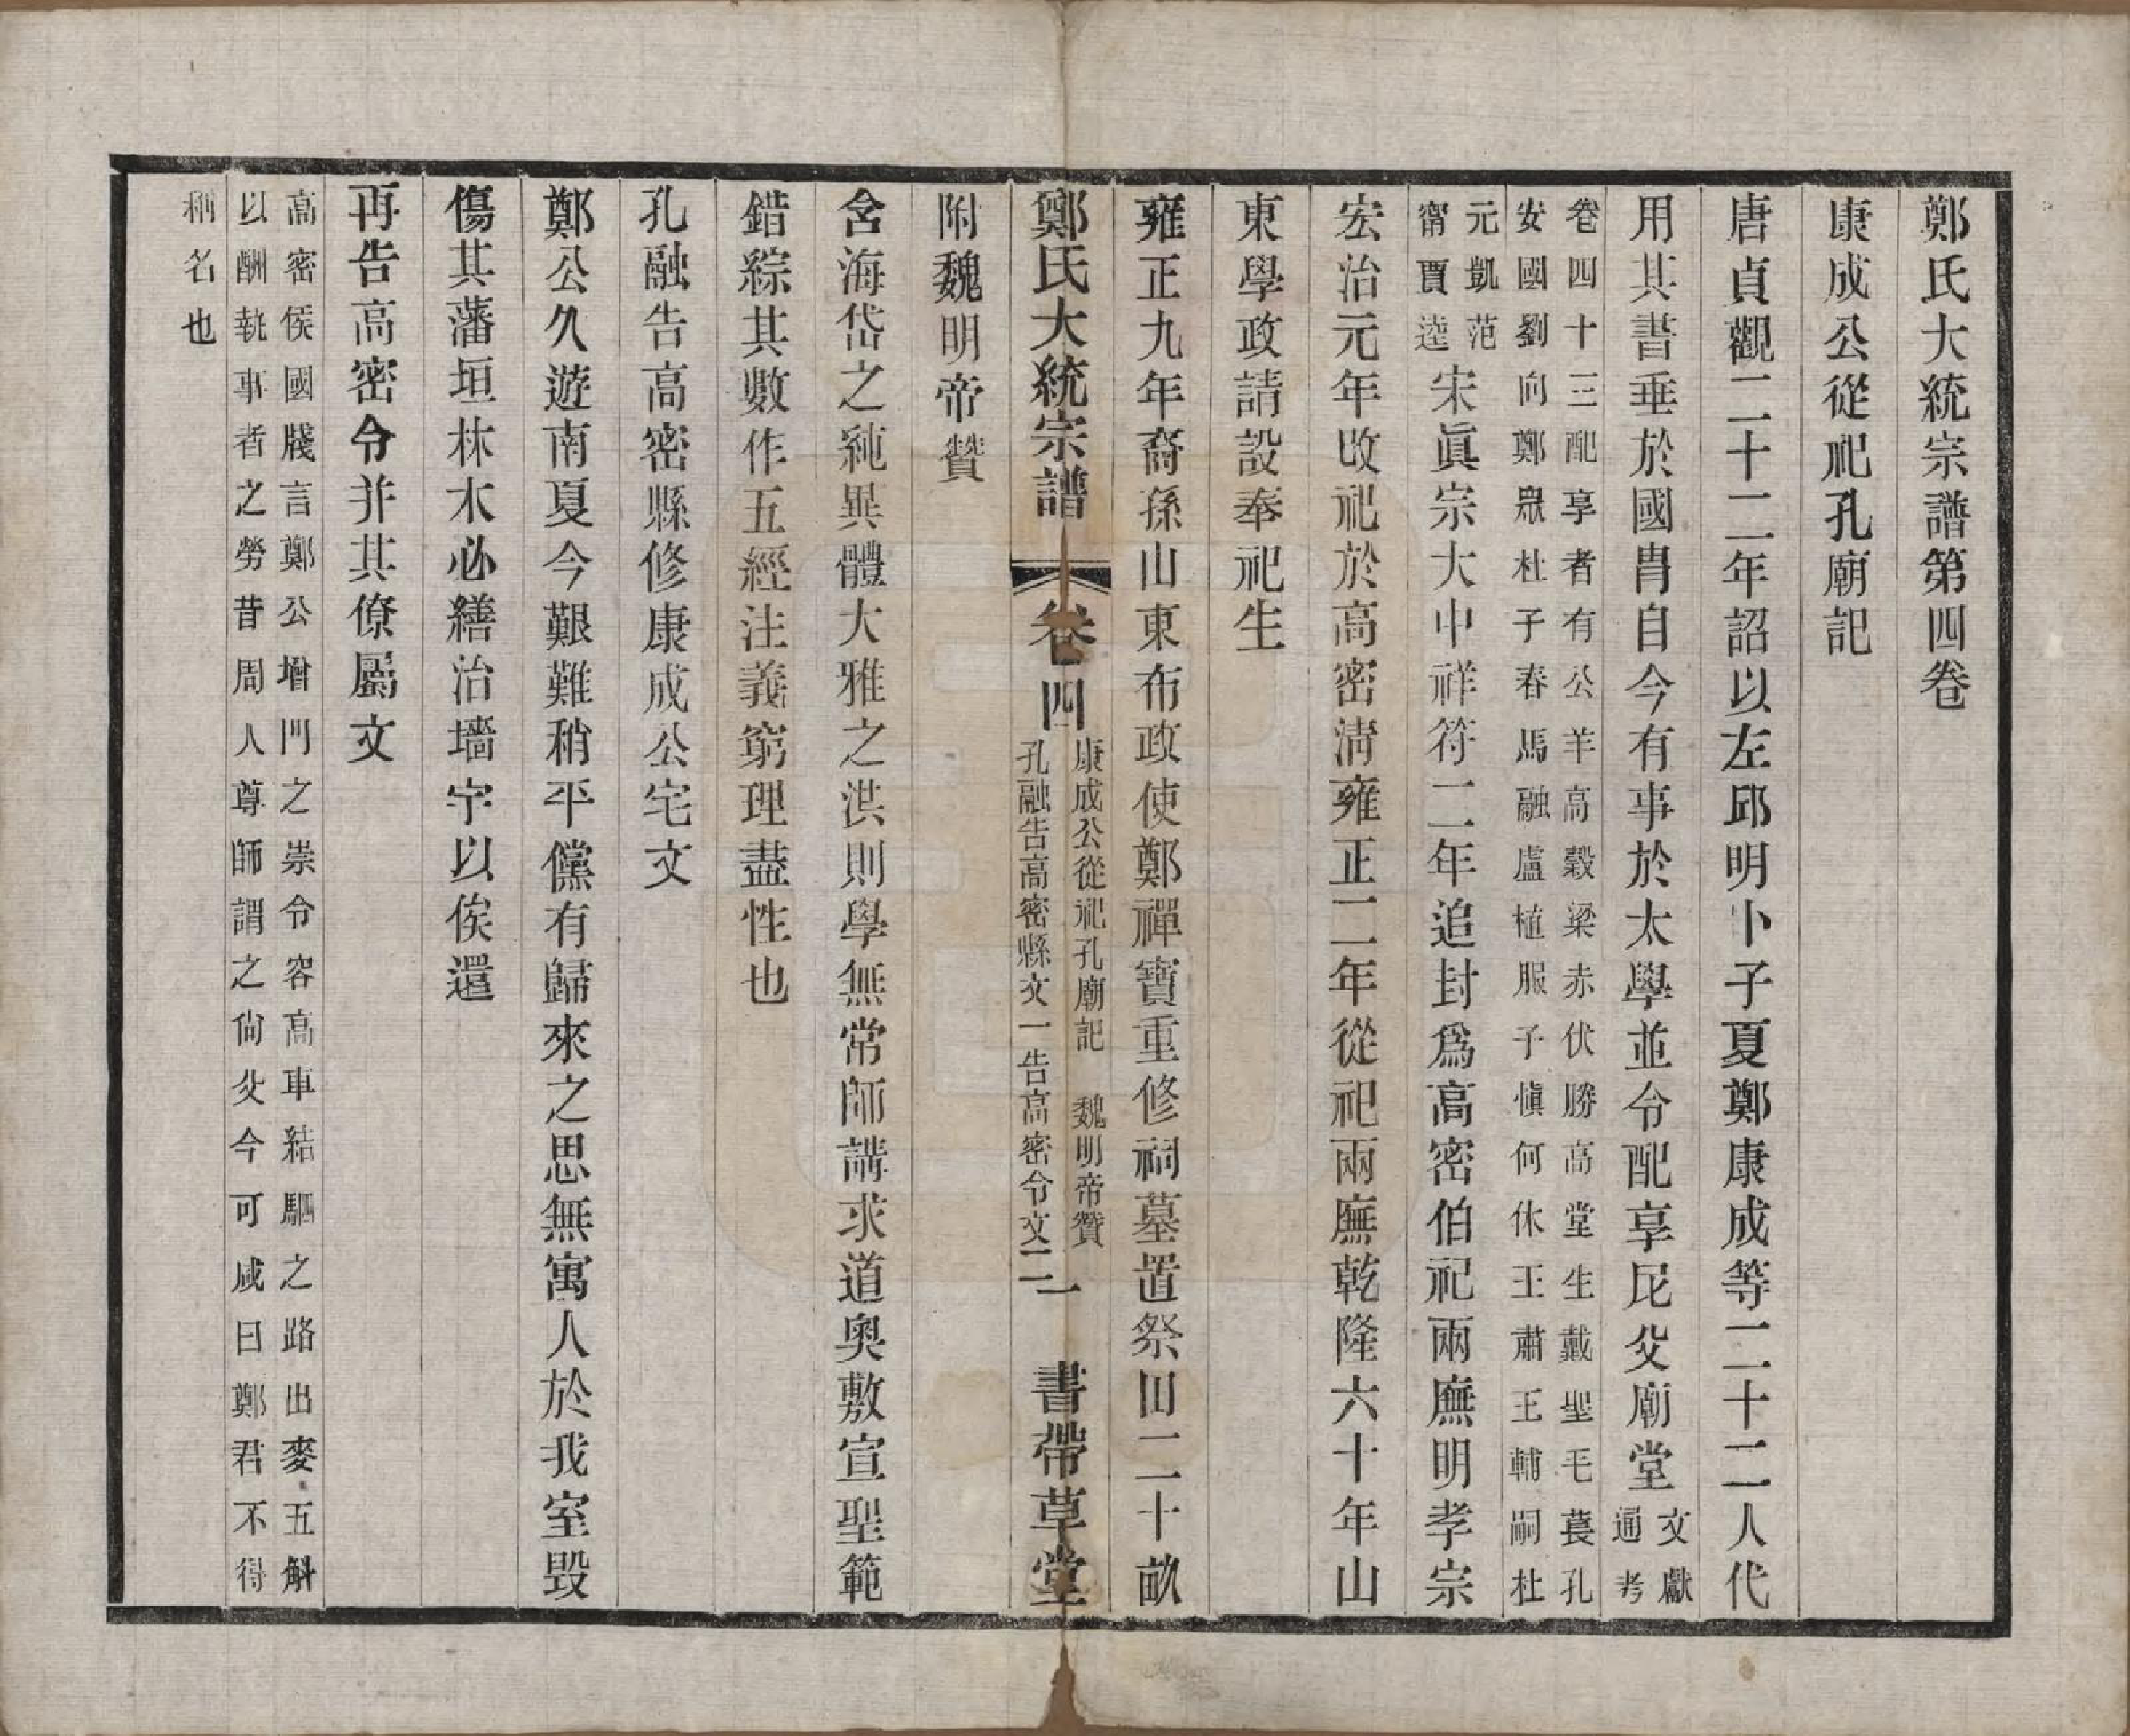 鄭氏大統宗譜第四卷
康成公從祀孔廟記
唐貞觀二十二年詔以左邱明卜子夏鄭康成等二十二人代
用其書垂於國胄自今有事於太學並令配享尼父廟堂文獻
通考
卷四十三配享者有公羊高穀梁赤伏勝高堂生戴聖毛萇孔
安國劉向鄭眾杜子春馬融盧植服子慎何休王肅王輔嗣杜
元凱范
甯賈逵宋眞宗大中祥符二年追封爲高密伯祀兩廡明孝宗
宏治元年改祀於高密淸雍正二年從祀兩廡乾隆六十年山
東學政請設奉祀生
雍正九年裔孫山東布政使鄭禪寶重修祠墓置祭田二十畝
鄭氏大統宗譜 卷四 康成公從祀孔廟記 魏明帝贊
孔融告高密縣文一告高密令文二 一 書帶草堂
附魏明帝贊
含海岱之純異體大雅之洪則學無常師講求道奧敷宣聖範
錯綜其數作五經注義窮理盡性也
孔融告高密縣修康成公宅文
鄭公久遊南夏今艱難稍平儻有歸來之思無寓人於我室毀
傷其藩垣林木必繕治墻宇以俟還
再告高密令并其僚屬文
高密侯國牋言鄭公增門之崇令容高車結駟之路出麥五斛
以酬執事者之勞昔周人尊師謂之尙父今可咸曰鄭君不得
稱名也